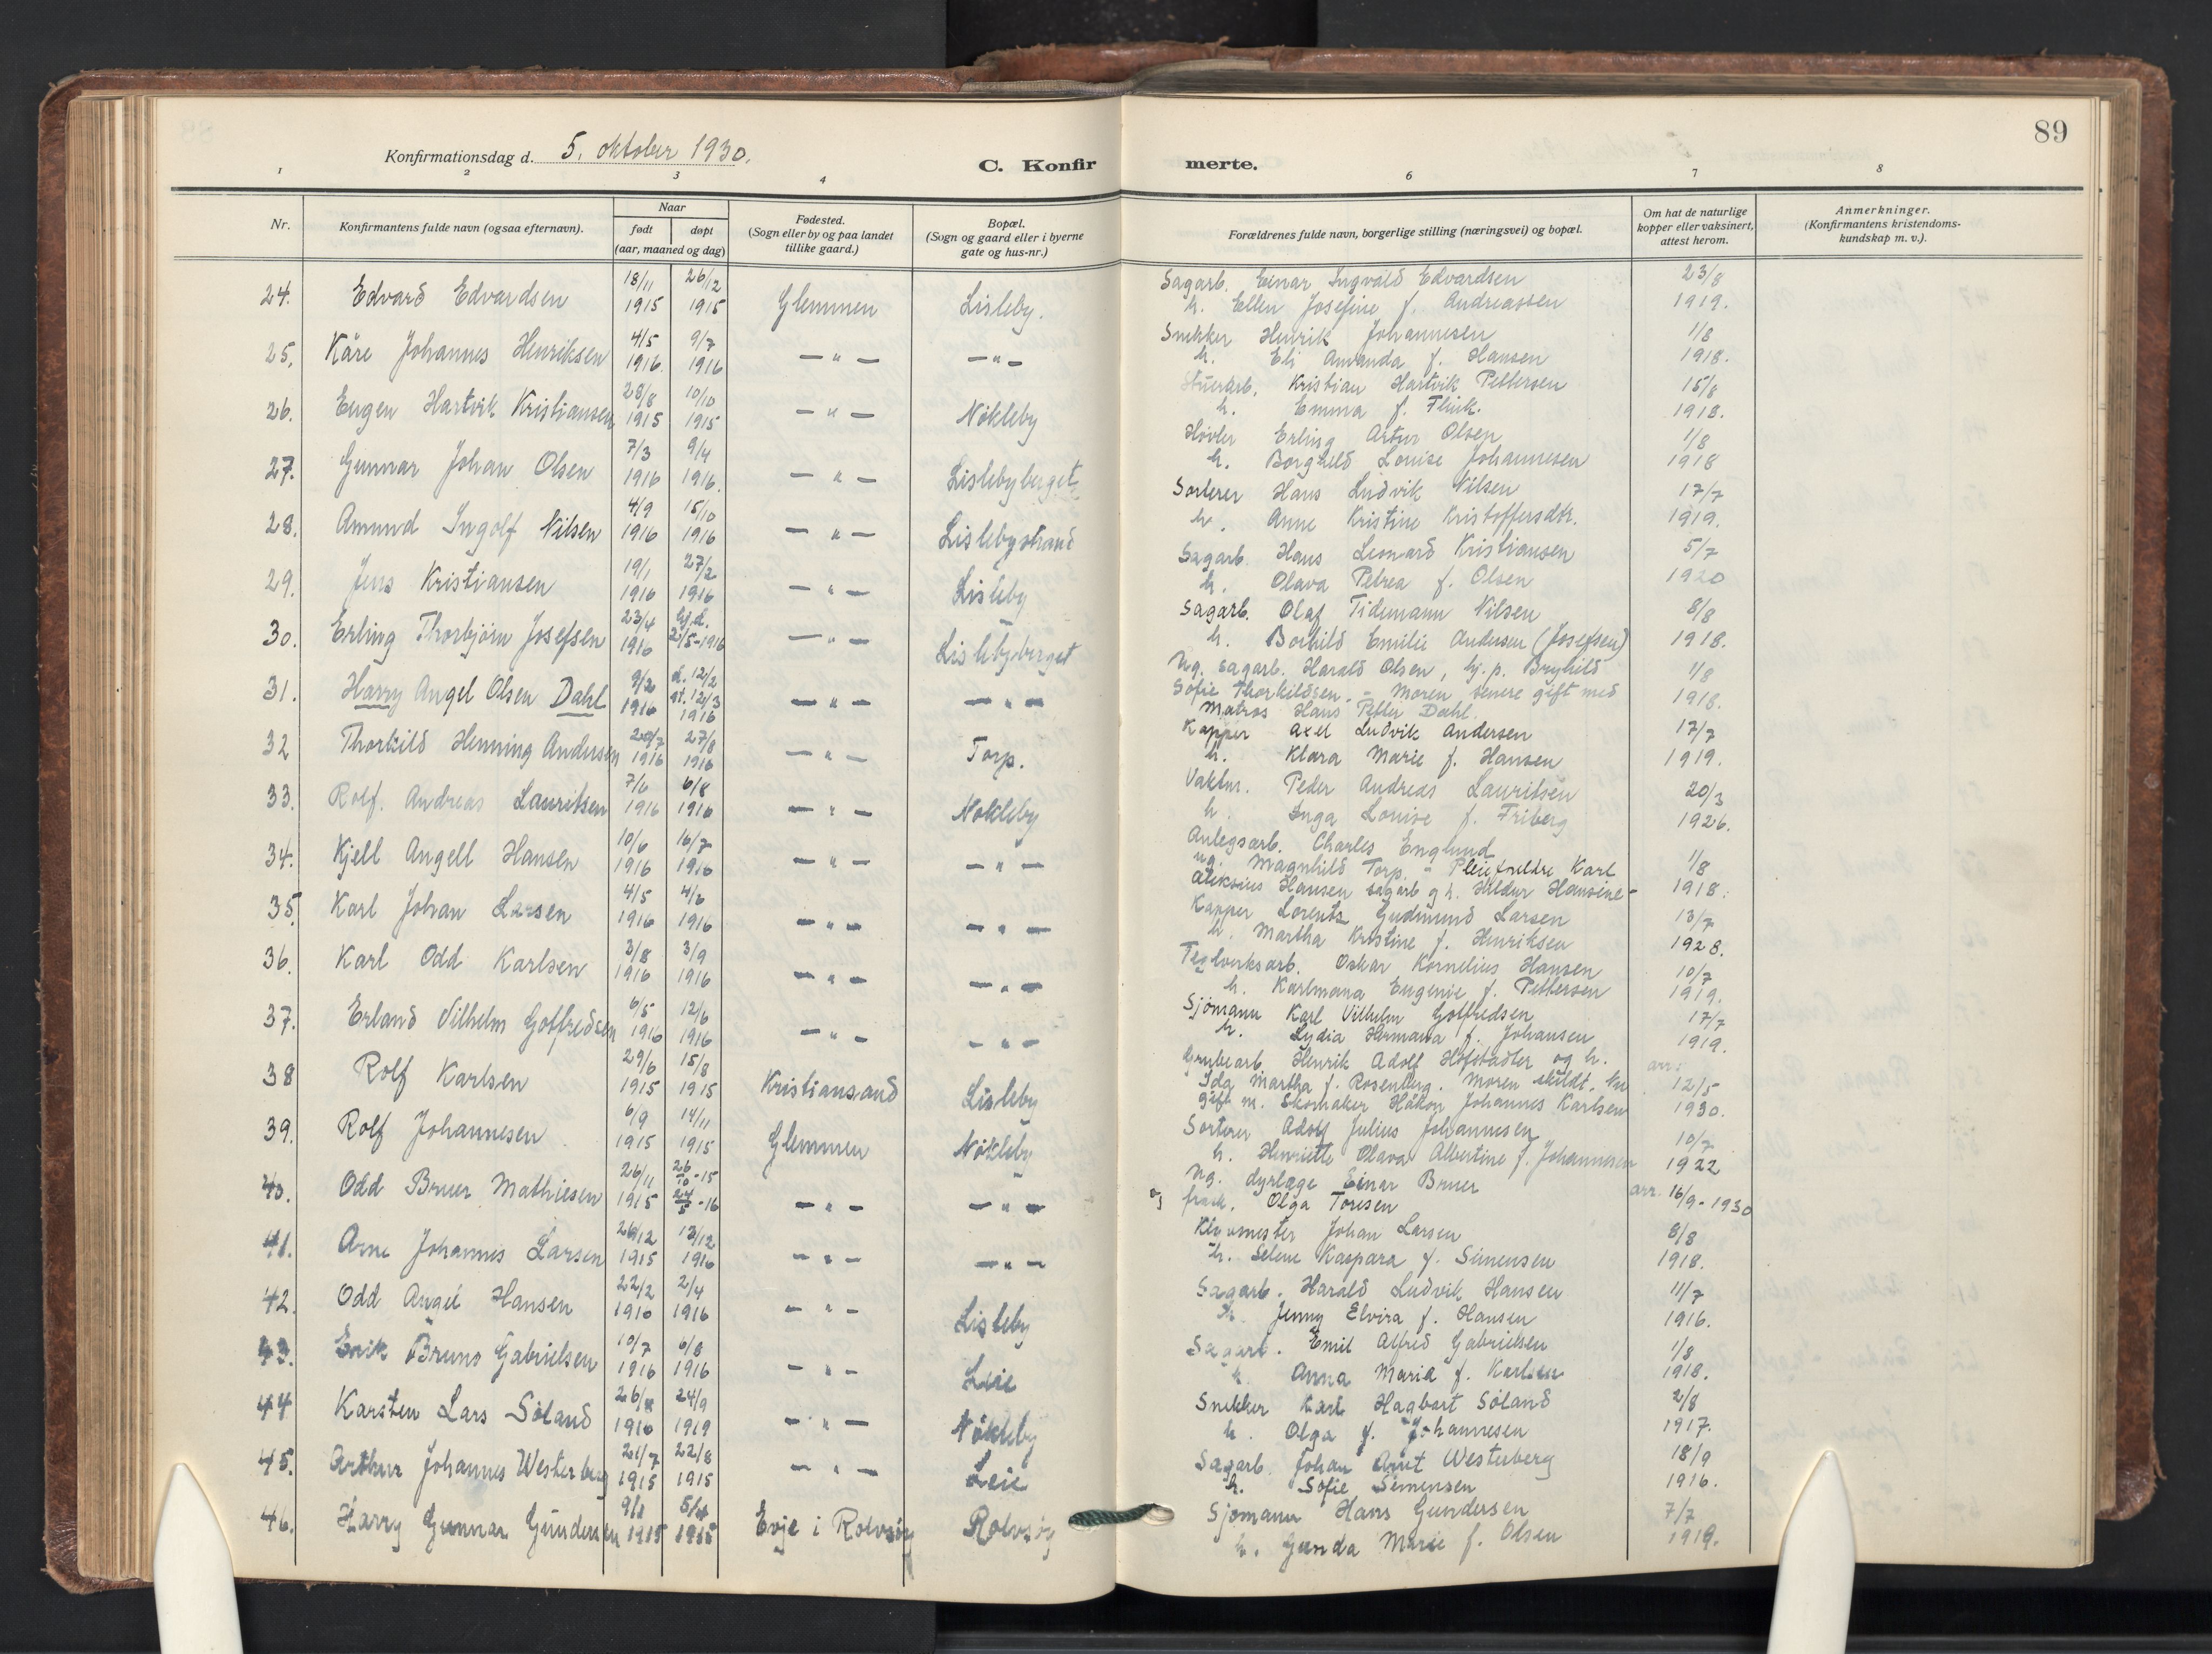 89
Konfirmationsdag d. 5. oktober 1930.
C. Konfirmerte.
1 2 3 4 6 7 8
Nr. | Konfirmantens fulde navn (ogsaa efternavn). | Naar født døpt (aar, maaned og dag) | Fødested. (Sogn eller by og paa landet tillike gaard.) | Bopæl. (Sogn og gaard eller i byerne gate og hus-nr.) | Forældrenes fulde navn, borgerlige stilling (næringsvei) og bopæl. | Om hat de naturlige kopper eller vaksinert, attest herom. | Anmerkninger. (Konfirmantens kristendoms-kundskap m. v.).
24. Edvard Edvardsen 18/11 1915 26/12 1915 Glemmen Lisleby. Sagarb. Einar Ingvald Edvardsen 23/8
h. Ellen Josefine f. Andreassen 1919.
25. Kåre Johannes Henriksen 4/5 1916. 9/7 1916 — " — — " — Snekker Henrik Johannesen 1/8
h. Eli Amanda f. Hansen 1918.
26. Eugen Hartvik Kristiansen 28/8 1915 10/10 1915 — " — Nökleby Stuerarb. Kristian Hartvik Pettersen 15/8
h. Emma f. Flink. 1918.
27. Gunnar Johan Olsen 7/3 1916 9/4 1916. — " — Lislebyberget Høvler Erling Artur Olsen 1/8
h. Borghild Louise Johannesen 1918
28. Amund Ingolf Nilsen 4/9 1916 15/10 1916 — " — Lislebystrand Sorterer Hans Ludvik Nilsen 17/7
h. Anne Kristine Kristoffersdtr. 1919.
29. Jens Kristiansen 19/1 1916 27/2 1916 — " — Lisleby Sagarb. Hans Leonard Kristiansen 5/7
h. Olava Petrea f. Olsen 1920
30. Erling Thorbjörn Josefsen 23/4 1916 hj.d. 21/5-1916 — " — Lislebyberget Sagarb. Olaf Tidemann Nilsen 8/8
h. Borhild Emilie Andersen (Josefsen) 1918.
31. Harry Angel Olsen Dahl 9/2 1916 d. 12/2 st. 12/3 1916 — " — — " — Ug. sagarb. Harald Olsen, hj. p. Bryhild 1/8
Sofie Thorkildsen. - Moren senere gift med 1918.
Matros Hans Petter Dahl.
32 Thorkild Henning Andersen 20/7 1916 27/8 1916 — " — Torp. Kapper Axel Ludvik Andersen 17/7
h. Klara Marie f. Hansen 1919.
33. Rolf. Andreas Lauritsen 7/6 1916 6/8 1916 — " — Nökleby Vaktm. Peder Andreas Lauritsen 20/3
h. Inga Louise f. Friberg 1926.
34. Kjell Angell Hansen 10/6 1916 16/7 1916 — " — — " — Anlegsarb. Charles Englund 1/8
ug. Magnhild Torp. - Pleiefreldre Karl
Aleksius Hansen sagarb og h. Hildur Hansine - 1918.
35. Karl Johan Larsen 4/5 1916 4/6 1916 — " — — " — Kapper Lorents Gudmund Larsen 13/7
h. Martha Kristine f. Henriksen 1928.
36. Karl Odd Karlsen 3/8 1916 3/9 1916 — " — — " — Teglverksarb. Oskar Kornelius Hansen 10/7
h. Karlmana Eugenie f. Pettersen 1919.
37. Erland Vilhelm Gotfredsen 6/5 1916 12/6 1916 — " — — " — Sjömann Karl Vilhelm Gotfredsen 17/7
h. Lydia Hermana f. Johansen 1919.
38 Rolf Karlsen 29/6 1915 15/8 1915 Kristiansand Lisleby Grubearb. Henrik Adolf Hofstadter og h. arr.
Ida Martha f. Rosenberg. Moren skildt. Nu 12/5
gift m. Skomaker Håkon Johannes Karlsen 1930.
39. Rolf Johannesen 6/9 1915 14/11 1915 Glemmen Nökleby Sorterer Adolf Julius Johannesen 10/7
h. Henriette Olava Albertine f. Johannesen 1922
40. Odd Bruer Mathiesen 26/11 1915 26/10-15 24/5-16 — " — — " — Ug. dyrlæge Einar Bruer arr. 16/9-1930
og frask. Olga Toresen
41. Arne Johannes Larsen 26/12 1915 13/12 1916 — " — — " — Johan Larsen 8/8
h. Selene Kaspara f. Simensen 1918.
42. Odd Angel Hansen 22/2 1910 2/4 1916 — " — Lisleby Sagarb. Harald Ludvik Hansen 11/7
h. Jenny Elvira f. Hansen 1916.
43. Erik Bruno Gabrielsen 10/7 1916 6/8 1916 — " — Leie Sagarb. Emil Alfred Gabrielsen 1/8
h. Anna Maria f. Karlsen 1918.
44 Karsten Lars Söland 26/8 1916 24/9 1919 — " — Nökleby Snekker Karl Hagbart Söland 2/8
h. Olga f. Johannesen 1917.
45. Arthur Johannes Westerberg 21/7 1915 22/8 1915 — " — Leie Sagarb. Johan Arnt Westerberg 18/9
h. Sofie Simensen 1916.
46. Harry Gunnar Gundersen 9/1 1915 5/4 1915 Evje i Rolvsöy Rolvsöy Sjömann Hans Gundersen 7/7
h. Gunda Marie f. Olsen 1919.